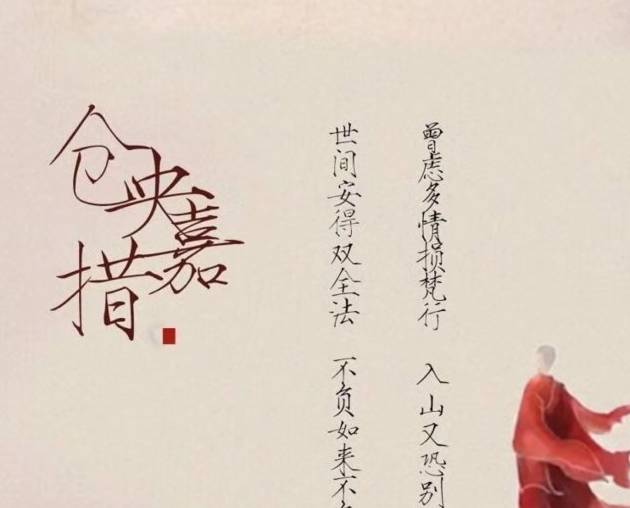 仓央嘉措
曾虑多情损梵行 入山又恐别
世间安得双全法 不负如来不